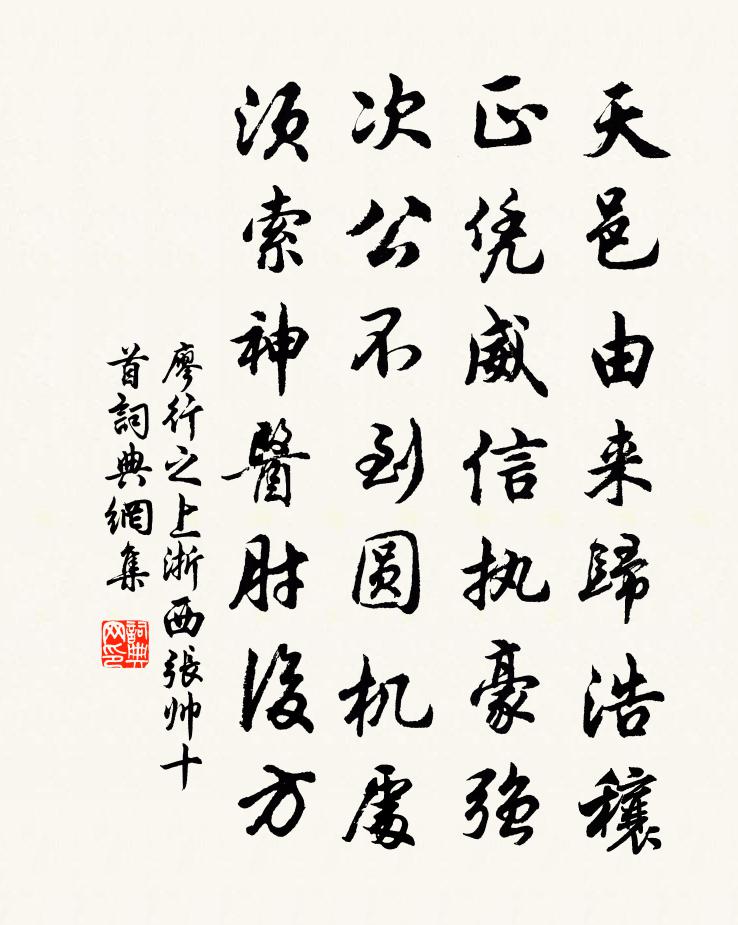 天邑由来歸浩穰
正凭威信执豪強
次公不到圆机處
须索神醫肘後方
廖行之上浙西張帅十
首詞典網集
詞典网印